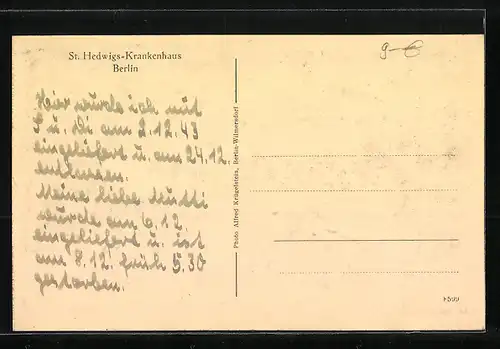 St. Hedwigs-Krankenhaus
Berlin
9-€
Hier wurde ich mit
S u. Di am 2.12.43
eingeliefert u. am 24.12.
entlassen.
Meine liebe Mutti
wurde am 6.12.
eingeliefert u. ist
am 8.12. früh 5.30
gestorben.
Photo Alfred Krügelstein, Berlin-Wilmersdorf